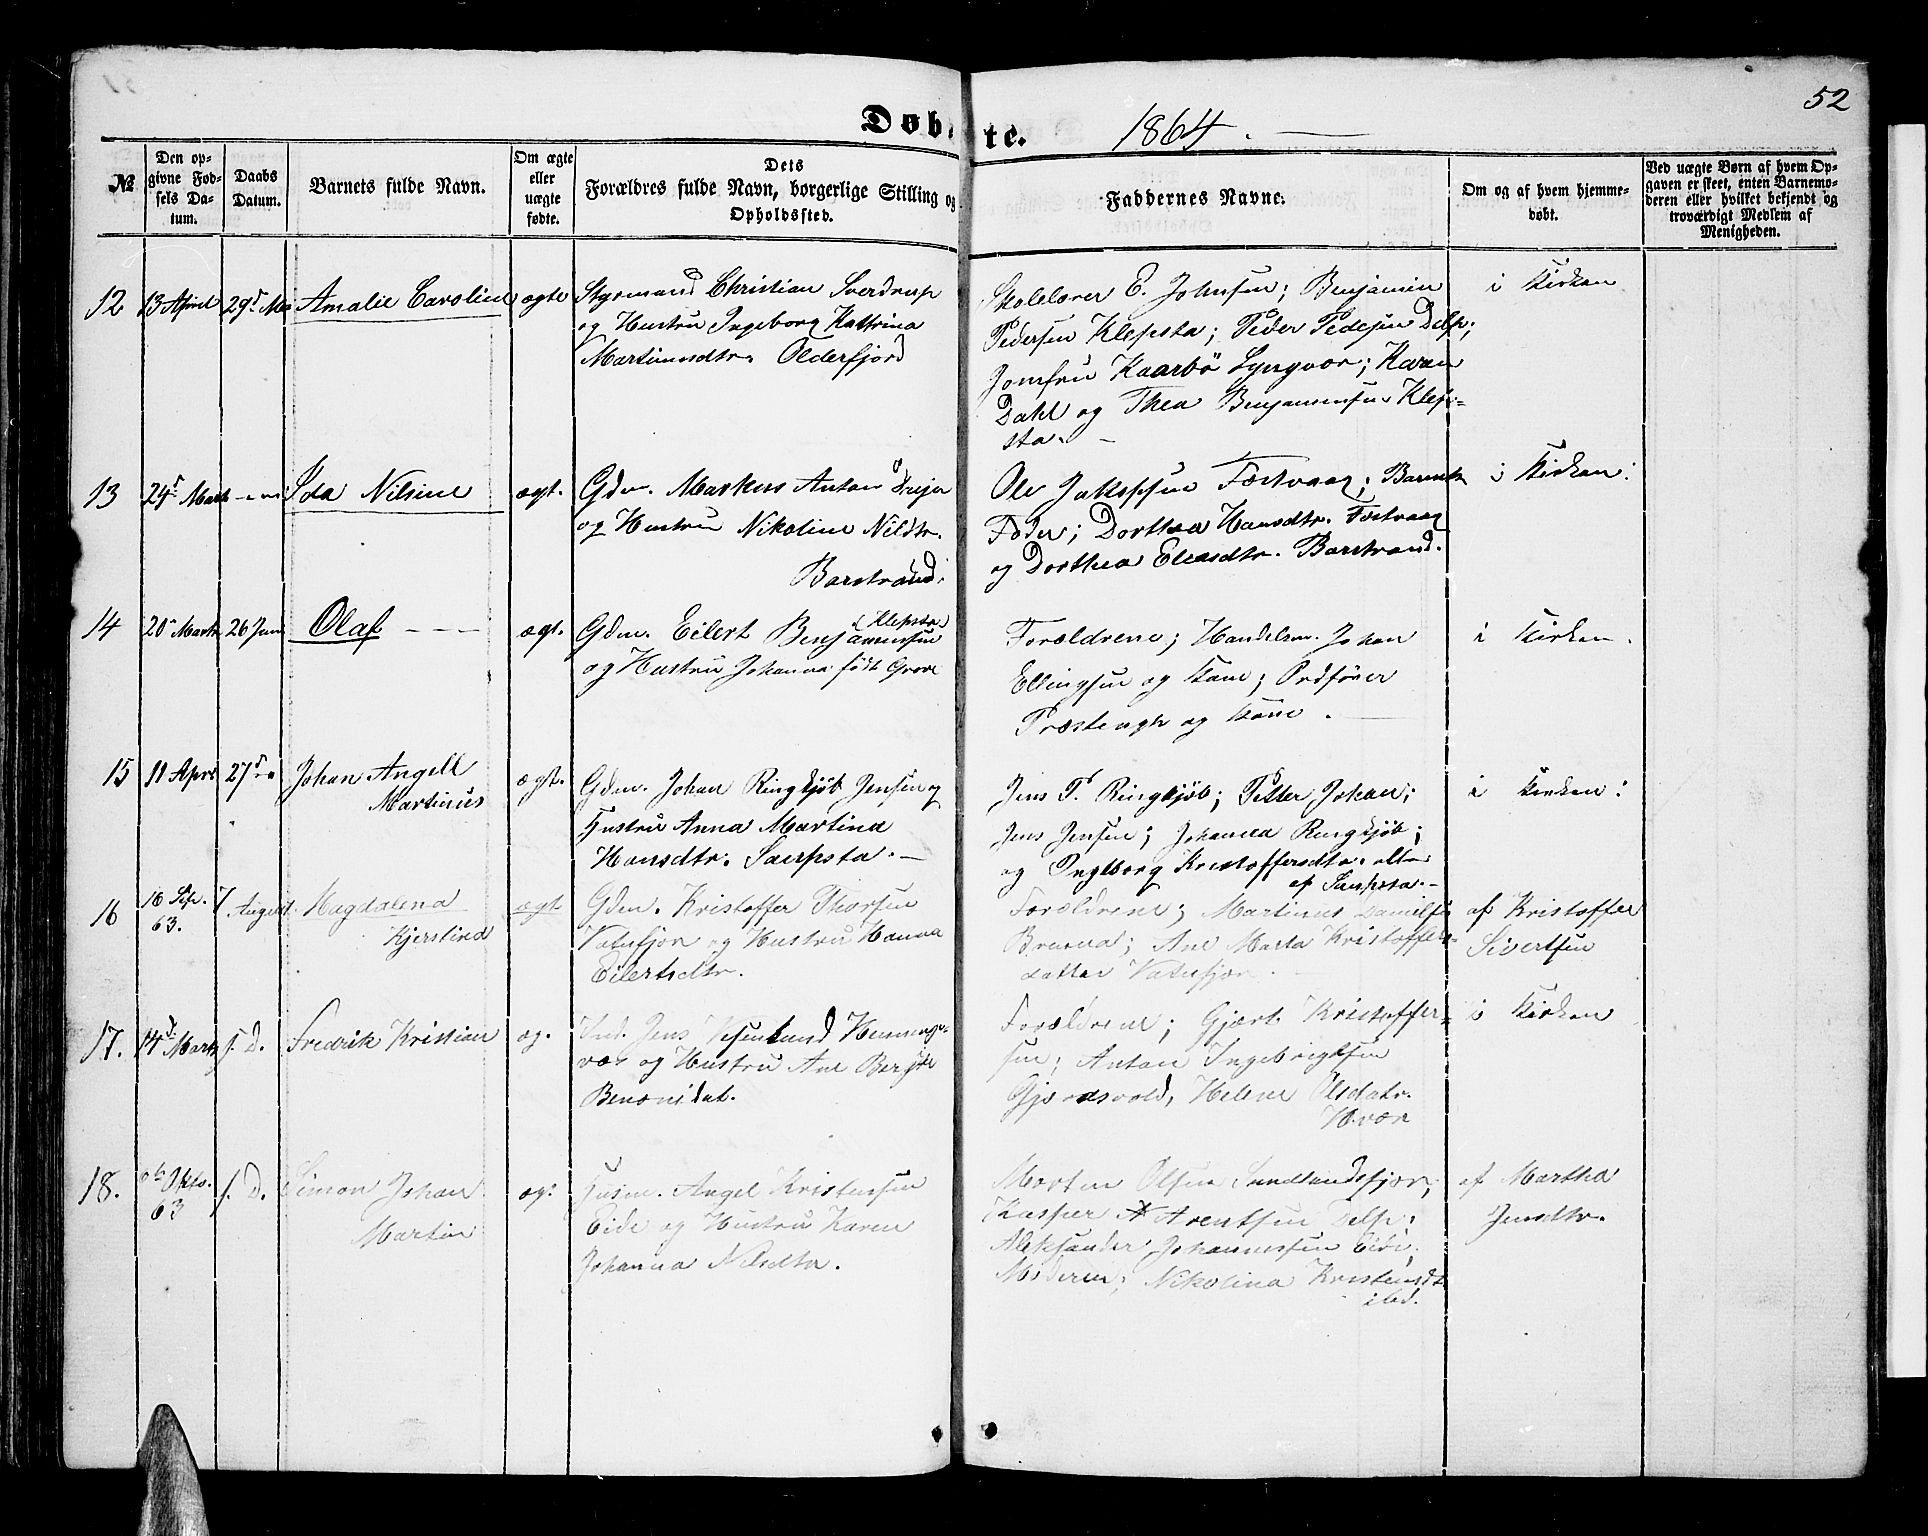 52
Døbte. 1864.
№
Den opgivne Fødsels Datum.
Daabs Datum.
Barnets fulde Navn.
Om ægte eller uægte fødte.
Dets Forældres fulde Navn, borgerlige Stilling og Opholdssted.
Faddernes Navne.
Om og af hvem hjemmedøbt.
Ved uægte Børn af hvem Opgaven er skeet, enten Barnemoderen eller hvilket bekjendt og troværdigt Medlem af Menigheden.
12 13 April 29d Mai Amalie Caroline ægte
Styrmand Christian Sverdrup
og Hustru Ingeborg Kathrina
Martinusdtr. Olderfjord
Skolelærer E. Johnsen; Benjamin
Pedersen Klepsta; Peder Pedersen Delp;
Jomfru Kaarbö Lyngvær; Karen
Dahl og Thea Benjaminsen Klep-
sta.
i Kirken
13 24d Marts Ida Nilsine ægt.
Gdm. Markus Anton
og Hustru Nikoline Nilsdtr.
Barstrand.
Ole Jakopsen Festvaag; Barnets
Fader; Dorthea Hansdtr. Festvaag
og Dorthea Eleasdtr. Barstrand.
i Kirken.
14 20 Marts 26 Juni Olaf ægt.
Gdm. Eilert Benjaminsen Klepsta
og Hustru Johanna født Grove
Forældrene; Handelsm. Johan
Ellingsen og Kone; Ordfører
og Kone.
i Kirken.
15 11 April 27d Johan Angell
Martinus
ægt.
Gdm. Johan Ringkjöb Jensen og
Hustru Anna Martina
Hansdtr. Saupsta.
Jens P. Ringkjöb; Petter Johan;
Jens Jensen; Johanna Ringkjöb;
og Ingeborg Kristoffersdtr. alle
af Saupsta.
i Kirken.
16 16 Sep. 63. 7 August Magdalena
Kjerstina
ægt
Gdm. Kristoffer Thorsen
Vatnfjor og Hustru Hanna
Eilertsdtr.
Forældrene; Martinus Danielsen
Brenna; Ane Marta Kristoffers-
datter Vatnfjor.
af Kristoffer
Sivertsen
17. 14d Marts s. D. Fredrik Kristian æg.
Ind. Jens Henningsvær og Hustru Ane Bergite
Benonidat.
Forældrene; Gjært Kristoffer-
sen; Anton Ingebrigtsen
Gjerdsvold, Helene Olsdatr.
H.vær
i Kirken
18. Okto. 63 s. D. Simon Johan
Martin
æg.
Husm. Angel Kristensen
Eide og Hustru Karen
Johanna Nilsdtr.
Morten Olsen Sundlandsfjor;
Kasper A Arentsen Delp;
Aleksander Johannessen Eide;
Moderen; Nikolina Kristensdt
ibid.
af Martha
Jensdtr.